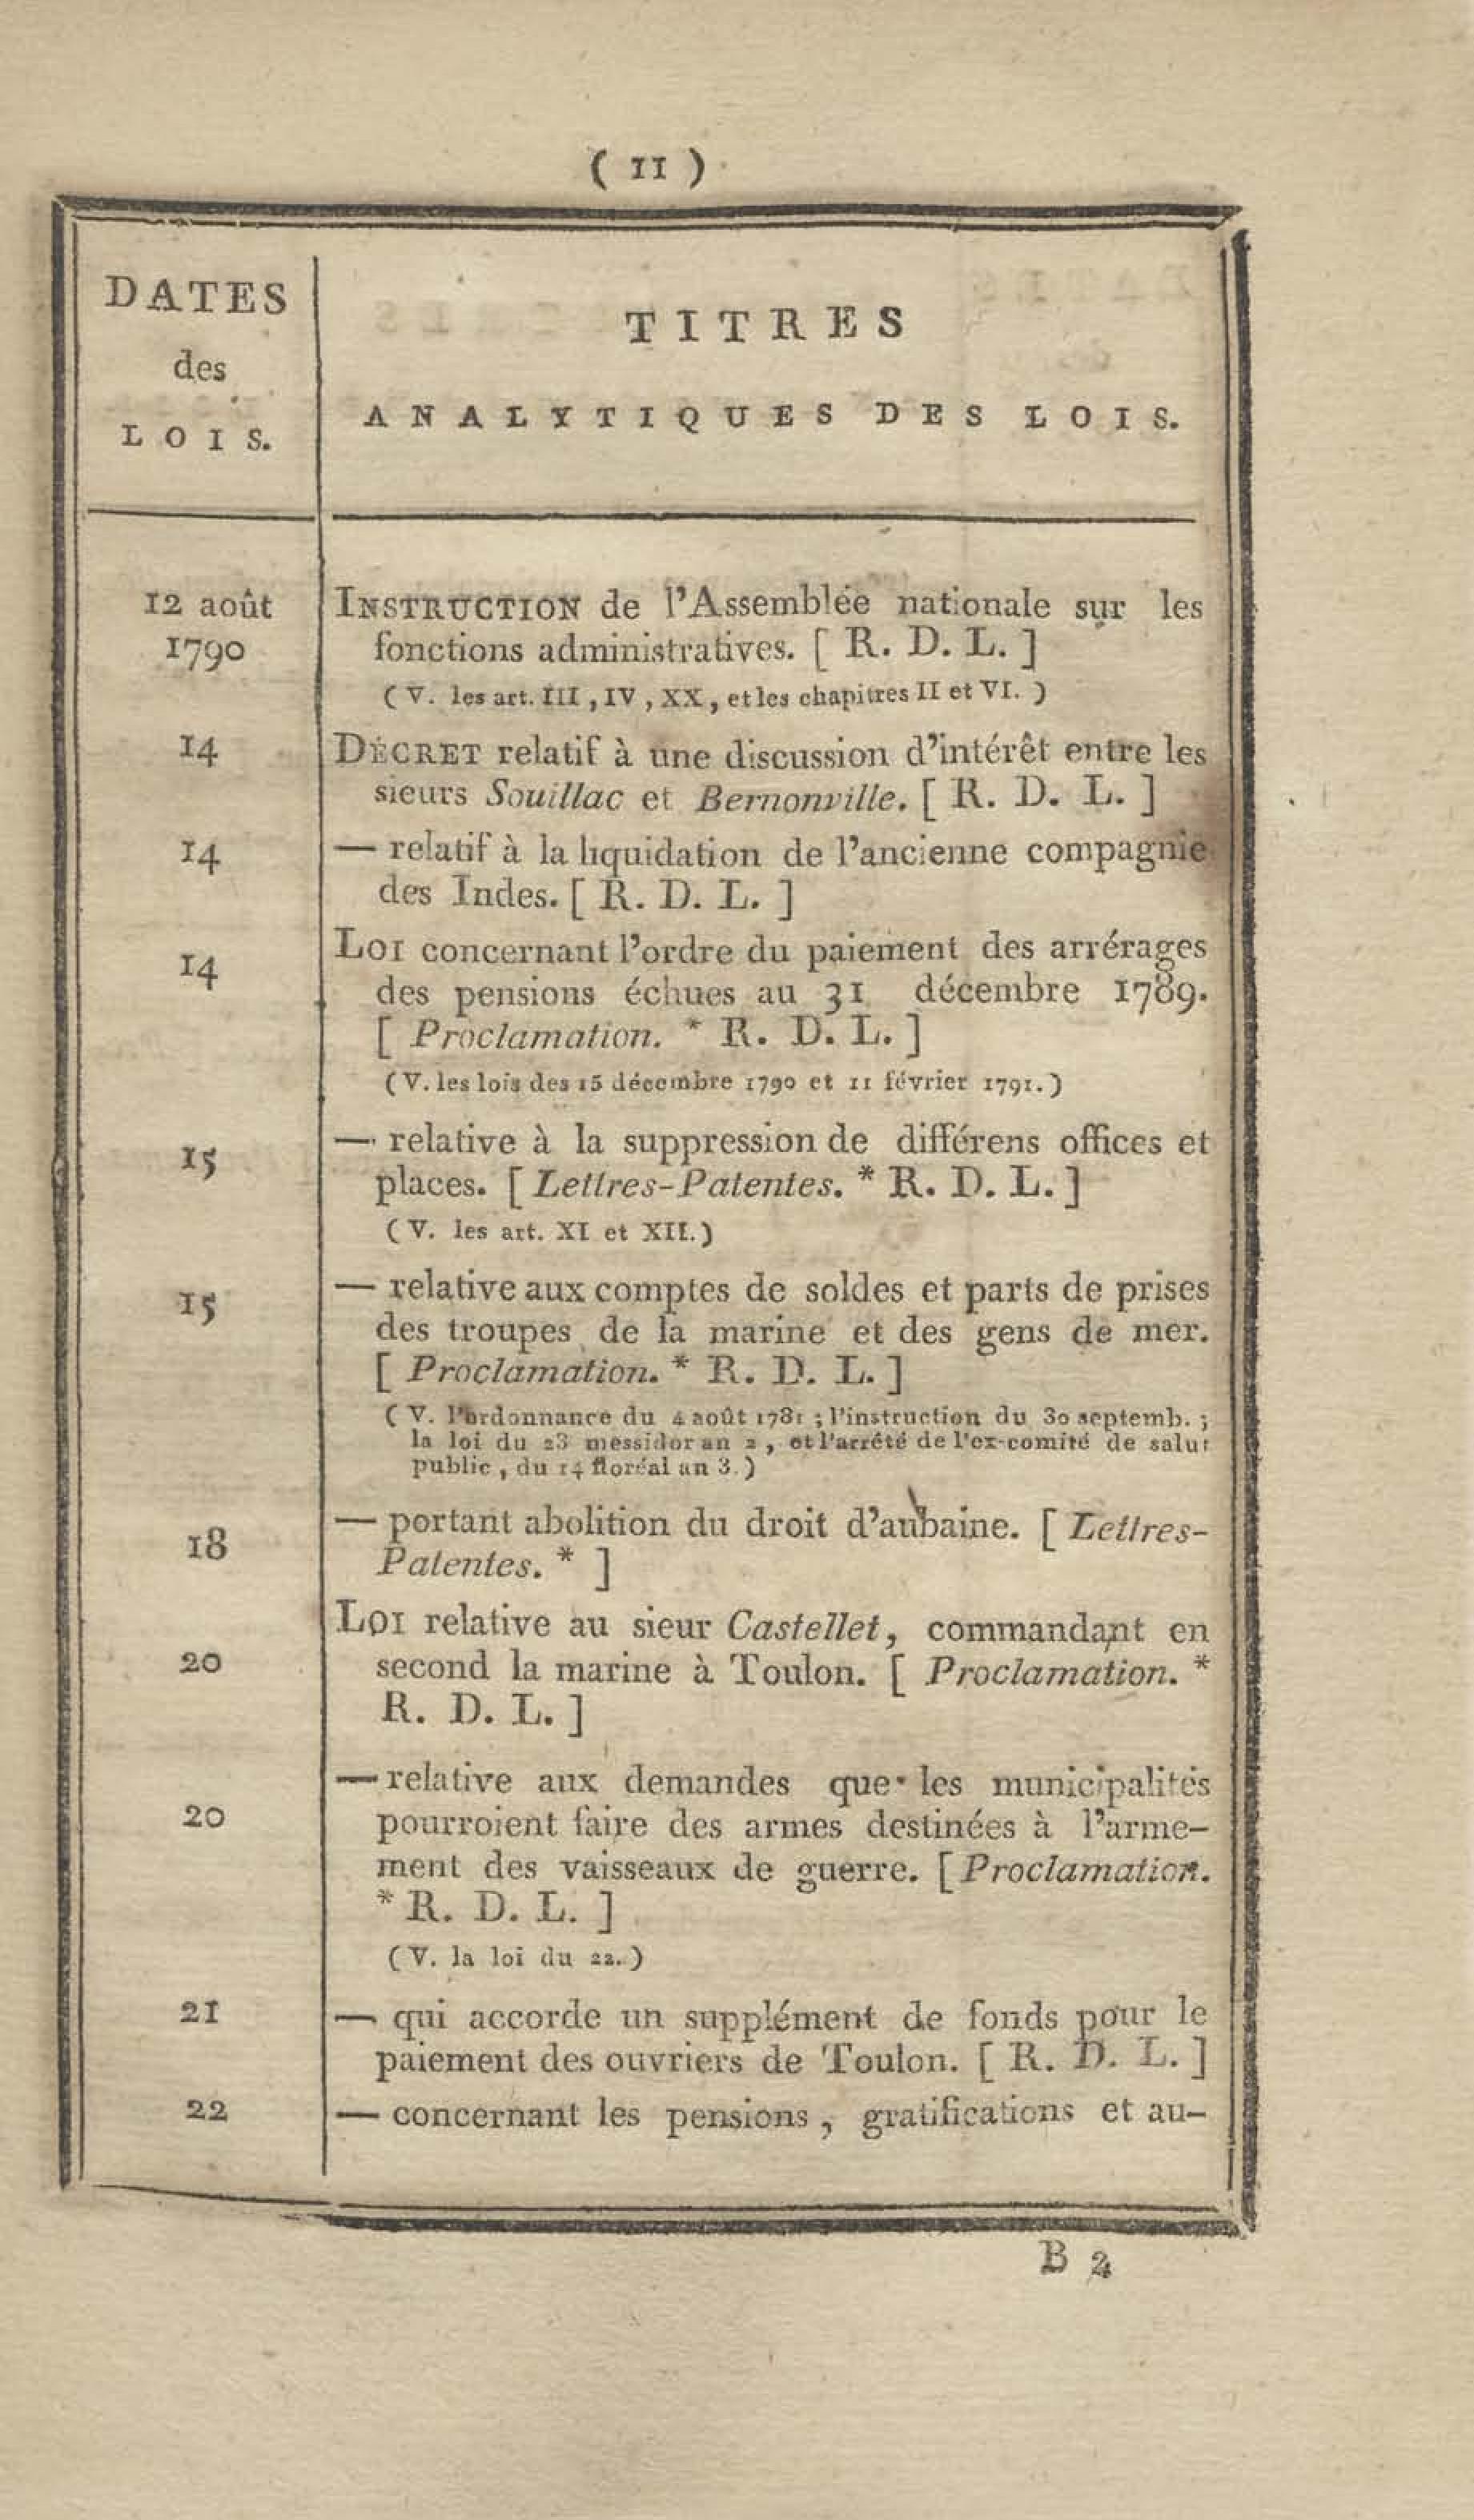 ( 11 )
DATES
des
LOIS.
TITRES
ANALYTIQUES DES LOIS.
12 août
1790
INSTRUCTION de l'Assemblée nationale sur les
fonctions administratives. [ R. D. L. ]
( V. les art. III, IV, XX, et les chapitres II et VI. )
14
DÉCRET relatif à une discussion d'intérêt entre les
sieurs Souillac et Bernonville. [ R. D. L. ]
14
— relatif à la liquidation de l'ancienne compagnie
des Indes. [ R. D. L. ]
14
LOI concernant l'ordre du paiement des arrérages
des pensions échues au 31 décembre 1789.
[ Proclamation. * R. D. L. ]
( V. les lois des 15 décembre 1790 et 11 février 1791. )
15
— relative à la suppression de différens offices et
places. [ Lettres-Patentes. * R. D. L. ]
( V. les art. XI et XII. )
15
— relative aux comptes de soldes et parts de prises
des troupes de la marine et des gens de mer.
[ Proclamation. * R. D. L. ]
( V. l'ordonnance du 4 août 1781 ; l'instruction du 30 septemb. ;
la loi du 23 messidor an 2, et l'arrêté de l'ex-comité de salut
public, du 14 floréal an 3. )
18
— portant abolition du droit d'aubaine. [ Lettres-
Patentes. * ]
20
LOI relative au sieur Castellet, commandant en
second la marine à Toulon. [ Proclamation. *
R. D. L. ]
20
— relative aux demandes que les municipalités
pourroient faire des armes destinées à l'arme-
ment des vaisseaux de guerre. [ Proclamation.
* R. D. L. ]
( V. la loi du 22. )
21
— qui accorde un supplément de fonds pour le
paiement des ouvriers de Toulon. [ R. D. L. ]
22
— concernant les pensions, gratifications et au-
B 2